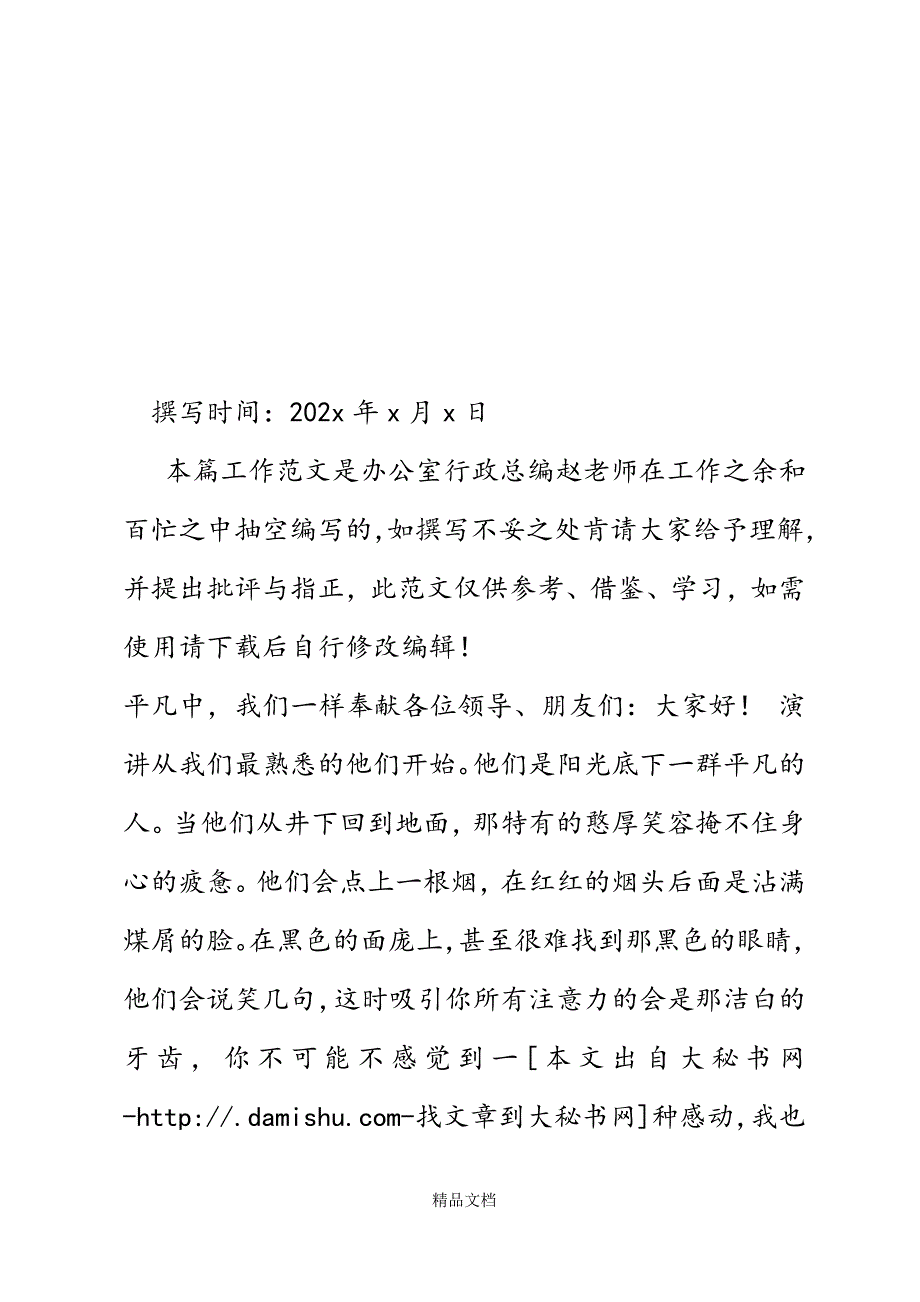 撰写时间：202x 年 x 月 x 日
本篇工作范文是办公室行政总编赵老师在工作之余和
百忙之中抽空编写的,如撰写不妥之处肯请大家给予理解,
并提出批评与指正，此范文仅供参考、借鉴、学习，如需
使用请下载后自行修改编辑！
平凡中，我们一样奉献各位领导、朋友们：大家好！ 演
讲从我们最熟悉的他们开始。他们是阳光底下一群平凡的
人。当他们从井下回到地面，那特有的憨厚笑容掩不住身
心的疲惫。他们会点上一根烟，在红红的烟头后面是沾满
煤屑的脸。在黑色的面庞上,甚至很难找到那黑色的眼睛,
他们会说笑几句,这时吸引你所有注意力的会是那洁白的
牙齿，你不可能不感觉到一[本文出自大秘书网
-http://.damishu.com-找文章到大秘书网]种感动,我也
精品文档